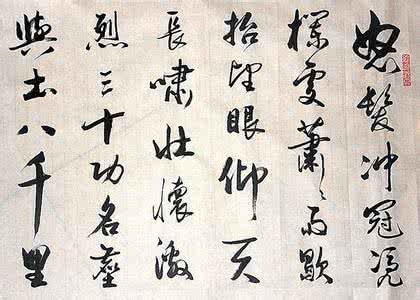 怒髮冲冠憑
欄處蕭々雨歇
抬望眼仰天
長嘯壯懷激
烈三十功名塵
與土八千里